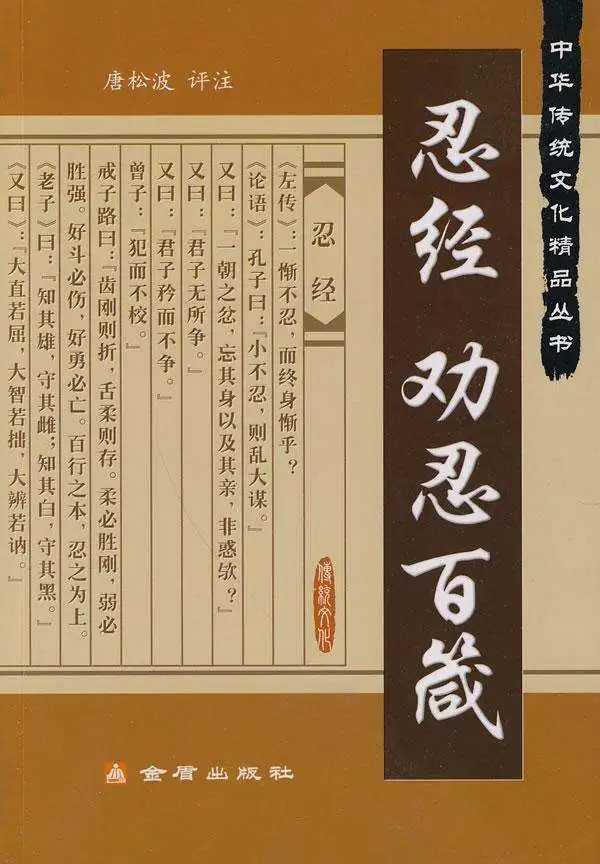 中华传统文化精品丛书
忍经 劝忍百箴
唐松波 评注
忍经
《左传》:一惭不忍,而终身惭乎?
《论语》:孔子曰:『小不忍,则乱大谋。』
又曰:『一朝之忿,忘其身以及其亲,非惑欤?』
又曰:『君子无所争。』
又曰:『君子矜而不争。』
曾子:『犯而不校。』
戒子路曰:『齿刚则折,舌柔则存。柔必胜刚,弱必
胜强。好斗必伤,好勇必亡。百行之本,忍之为上。』
《老子》曰:『知其雄,守其雌;知其白,守其黑。』
《又曰》:『大直若屈,大智若拙,大辨若讷。』
傳統文化
金盾出版社